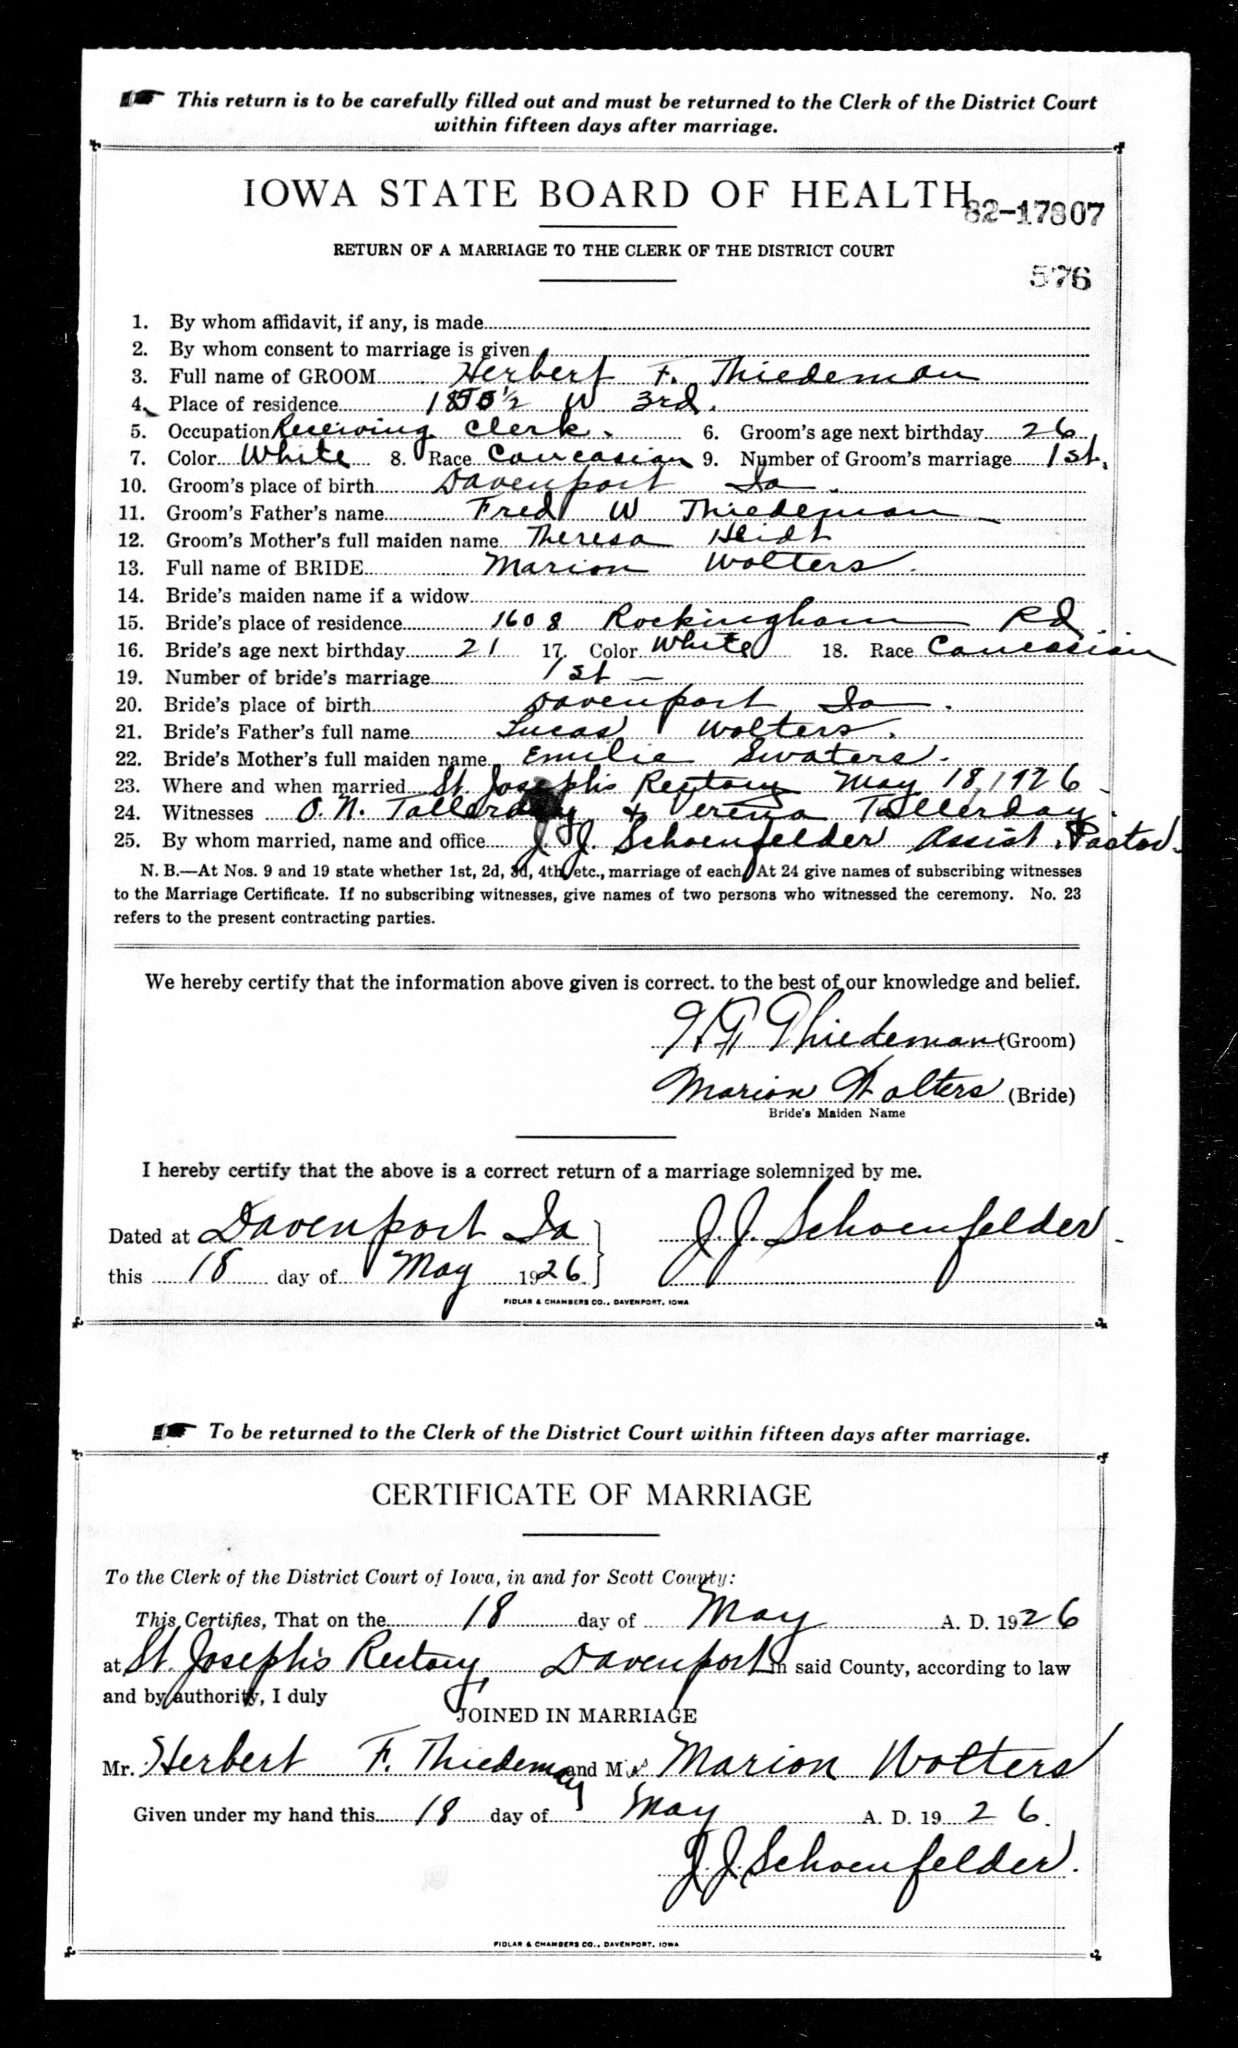 This return is to be carefully filled out and must be returned to the Clerk of the District Court
within fifteen days after marriage.
IOWA STATE BOARD OF HEALTH
82-17807
RETURN OF A MARRIAGE TO THE CLERK OF THE DISTRICT COURT
576
1. By whom affidavit, if any, is made
2. By whom consent to marriage is given
3. Full name of GROOM Herbert F. Thiedeman
4. Place of residence 1855½ W 3rd.
5. Occupation Receiving Clerk. 6. Groom's age next birthday 26
7. Color White 8. Race Caucasian 9. Number of Groom's marriage 1st.
10. Groom's place of birth Davenport Ia.
11. Groom's Father's name Fred W Thiedeman
12. Groom's Mother's full maiden name Theresa Heidt
13. Full name of BRIDE Marion Wolters.
14. Bride's maiden name if a widow
15. Bride's place of residence 1608 Rockingham Rd.
16. Bride's age next birthday 21 17. Color White 18. Race Caucasian
19. Number of bride's marriage 1st —
20. Bride's place of birth Davenport Ia.
21. Bride's Father's full name Lucas Wolters.
22. Bride's Mother's full maiden name Emilie Swaters.
23. Where and when married St. Joseph's Rectory May 18, 1926
24. Witnesses O. N. Tallerday & Verena Tallerday.
25. By whom married, name and office J. J. Schoenfelder Assist. Pastor.
N. B.—At Nos. 9 and 19 state whether 1st, 2d, 3d, 4th, etc., marriage of each. At 24 give names of subscribing witnesses
to the Marriage Certificate. If no subscribing witnesses, give names of two persons who witnessed the ceremony. No. 23
refers to the present contracting parties.
We hereby certify that the information above given is correct. to the best of our knowledge and belief.
H F Thiedeman (Groom)
Marion Wolters (Bride)
Bride's Maiden Name
I hereby certify that the above is a correct return of a marriage solemnized by me.
Dated at Davenport Ia J. J. Schoenfelder.
this 18 day of May 1926.
FIDLAR & CHAMBERS CO., DAVENPORT, IOWA
To be returned to the Clerk of the District Court within fifteen days after marriage.
CERTIFICATE OF MARRIAGE
To the Clerk of the District Court of Iowa, in and for Scott County:
This Certifies, That on the 18 day of May A. D. 1926
at St. Joseph's Rectory, Davenport in said County, according to law
and by authority, I duly
JOINED IN MARRIAGE
Mr. Herbert F. Thiedeman and Miss Marion Wolters
Given under my hand this 18 day of May A. D. 1926.
J. J. Schoenfelder.
FIDLAR & CHAMBERS CO., DAVENPORT, IOWA